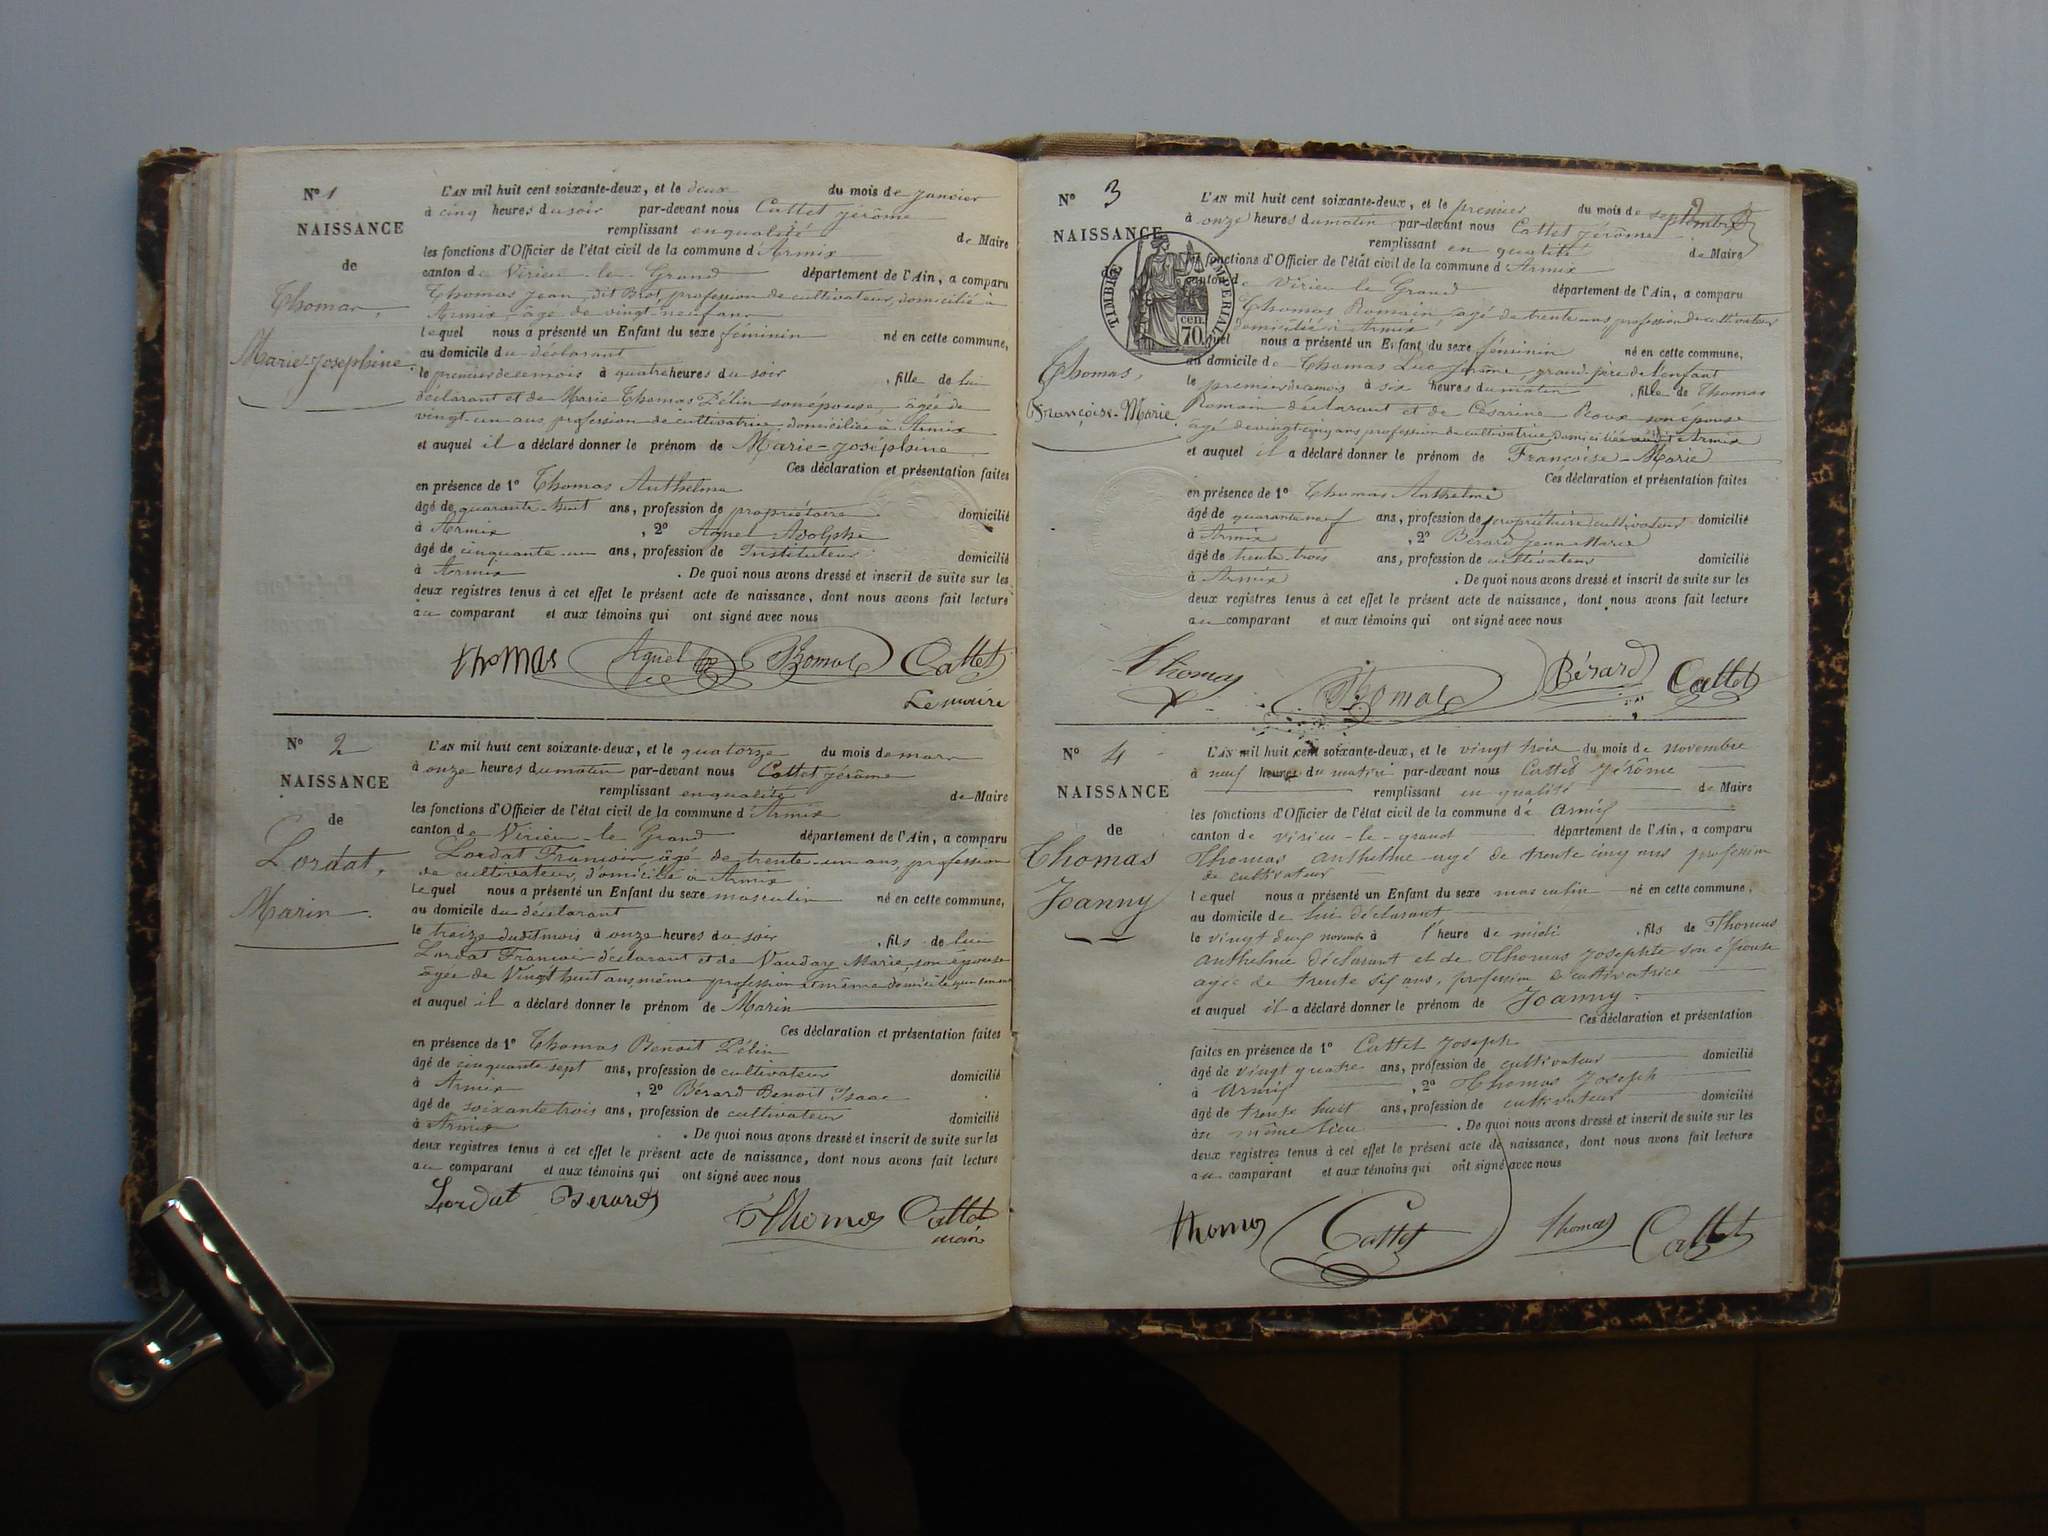 N° 1
NAISSANCE
de
Thomas,
Marie-Joséphine.
L'AN mil huit cent soixante-deux, et le deux du mois de janvier
à cinq heures du soir par-devant nous Cattet jérôme
remplissant en qualité de Maire
les fonctions d'Officier de l'état civil de la commune d'Armix
canton de Virieu-le-Grand département de l'Ain, a comparu
Thomas Jean, dit Brot, profession de cultivateur, domicilié à
Armix, âgé de vingt-neuf ans
lequel nous a présenté un Enfant du sexe féminin né en cette commune,
au domicile du déclarant
le premier de ce mois à quatre heures du soir , fille de lui
déclarant et de Marie Thomas Pélin son épouse, âgée de
vingt-un ans profession de cultivatrice, domiciliée à Armix
et auquel il a déclaré donner le prénom de Marie-Joséphine
Ces déclaration et présentation faites
en présence de 1° Thomas Anthelme
âgé de quarante-huit ans, profession de propriétaire domicilié
à Armix , 2° Aguel Adolphe
âgé de cinquante-un ans, profession de Instituteur domicilié
à Armix . De quoi nous avons dressé et inscrit de suite sur les
deux registres tenus à cet effet le présent acte de naissance, dont nous avons fait lecture
au comparant et aux témoins qui ont signé avec nous
thomas Aguel Thomas Cattet
Le maire
N° 2
NAISSANCE
de
Lordat,
Marin.
L'AN mil huit cent soixante-deux, et le quatorze du mois de mars
à onze heures du matin par-devant nous Cattet jérôme
remplissant en qualité de Maire
les fonctions d'Officier de l'état civil de la commune d'Armix
canton de Virieu-le-Grand département de l'Ain, a comparu
Lordat François, âgé de trente-un ans, profession
de cultivateur, domicilié à Armix
lequel nous a présenté un Enfant du sexe masculin né en cette commune,
au domicile du déclarant
le treize dudit mois à onze heures du soir , fils de lui
Lordat François déclarant et de Vauday Marie, son épouse
âgée de Vingt huit ans, même profession et même domicile que son mari
et auquel il a déclaré donner le prénom de Marin
Ces déclaration et présentation faites
en présence de 1° Thomas Benoit Pélin
âgé de cinquante sept ans, profession de cultivateur domicilié
à Armix , 2° Bérard Benoit Isaac
âgé de soixante trois ans, profession de cultivateur domicilié
à Armix . De quoi nous avons dressé et inscrit de suite sur les
deux registres tenus à cet effet le présent acte de naissance, dont nous avons fait lecture
au comparant et aux témoins qui ont signé avec nous
Lordat Berard Thomas Cattet
maire
N° 3
NAISSANCE
de
TIMBRE IMPÉRIAL
70 cen.
Thomas,
Françoise-Marie.
L'AN mil huit cent soixante-deux, et le premier du mois de septembre
à onze heures du matin par-devant nous Cattet jérôme
remplissant en qualité de Maire
les fonctions d'Officier de l'état civil de la commune d'Armix
canton de Virieu le Grand département de l'Ain, a comparu
Thomas Romain, âgé de trente ans, profession de cultivateur
domicilié à Armix
lequel nous a présenté un Enfant du sexe féminin né en cette commune,
au domicile de Thomas Luc jérôme, grand-père de l'enfant
le premier de ce mois à six heures du matin , fille de Thomas
Romain déclarant et de Césarine Roux son épouse
agé de vingt-cinq ans profession de cultivatrice, domiciliée Armix
et auquel il a déclaré donner le prénom de Françoise-Marie
Ces déclaration et présentation faites
en présence de 1° Thomas Anthelme
âgé de quarante neuf ans, profession de propriétaire cultivateur domicilié
à Armix , 2° Bérard jean Marie
âgé de trente-trois ans, profession de cultivateur domicilié
à Armix . De quoi nous avons dressé et inscrit de suite sur les
deux registres tenus à cet effet le présent acte de naissance, dont nous avons fait lecture
au comparant et aux témoins qui ont signé avec nous
Thomas Thomas Bérard Cattet
N° 4
NAISSANCE
de
Thomas
Joanny
L'AN mil huit cent soixante-deux, et le vingt trois du mois de novembre
à neuf heures du matin par-devant nous Cattet jérôme
remplissant en qualité de Maire
les fonctions d'Officier de l'état civil de la commune d'é Armix
canton de virieu-le-grand département de l'Ain, a comparu
Thomas anthelme agé de trente cinq ans profession
de cultivateur
lequel nous a présenté un Enfant du sexe masculin né en cette commune,
au domicile de lui déclarant
le vingt deux novembre à l'heure de midi , fils de Thomas
anthelme déclarant et de Thomas josephte son épouse
agée de trente six ans, profession de cultivatrice
et auquel il a déclaré donner le prénom de Joanny.
Ces déclaration et présentation
faites en présence de 1° Cattet Joseph
âgé de vingt quatre ans, profession de cultivateur domicilié
à Armix , 2° Thomas Joseph
âgé de trente huit ans, profession de cultivateur domicilié
au même lieu . De quoi nous avons dressé et inscrit de suite sur les
deux registres tenus à cet effet le présent acte de naissance, dont nous avons fait lecture
au comparant et aux témoins qui ont signé avec nous
thomas Cattet thomas Cattet